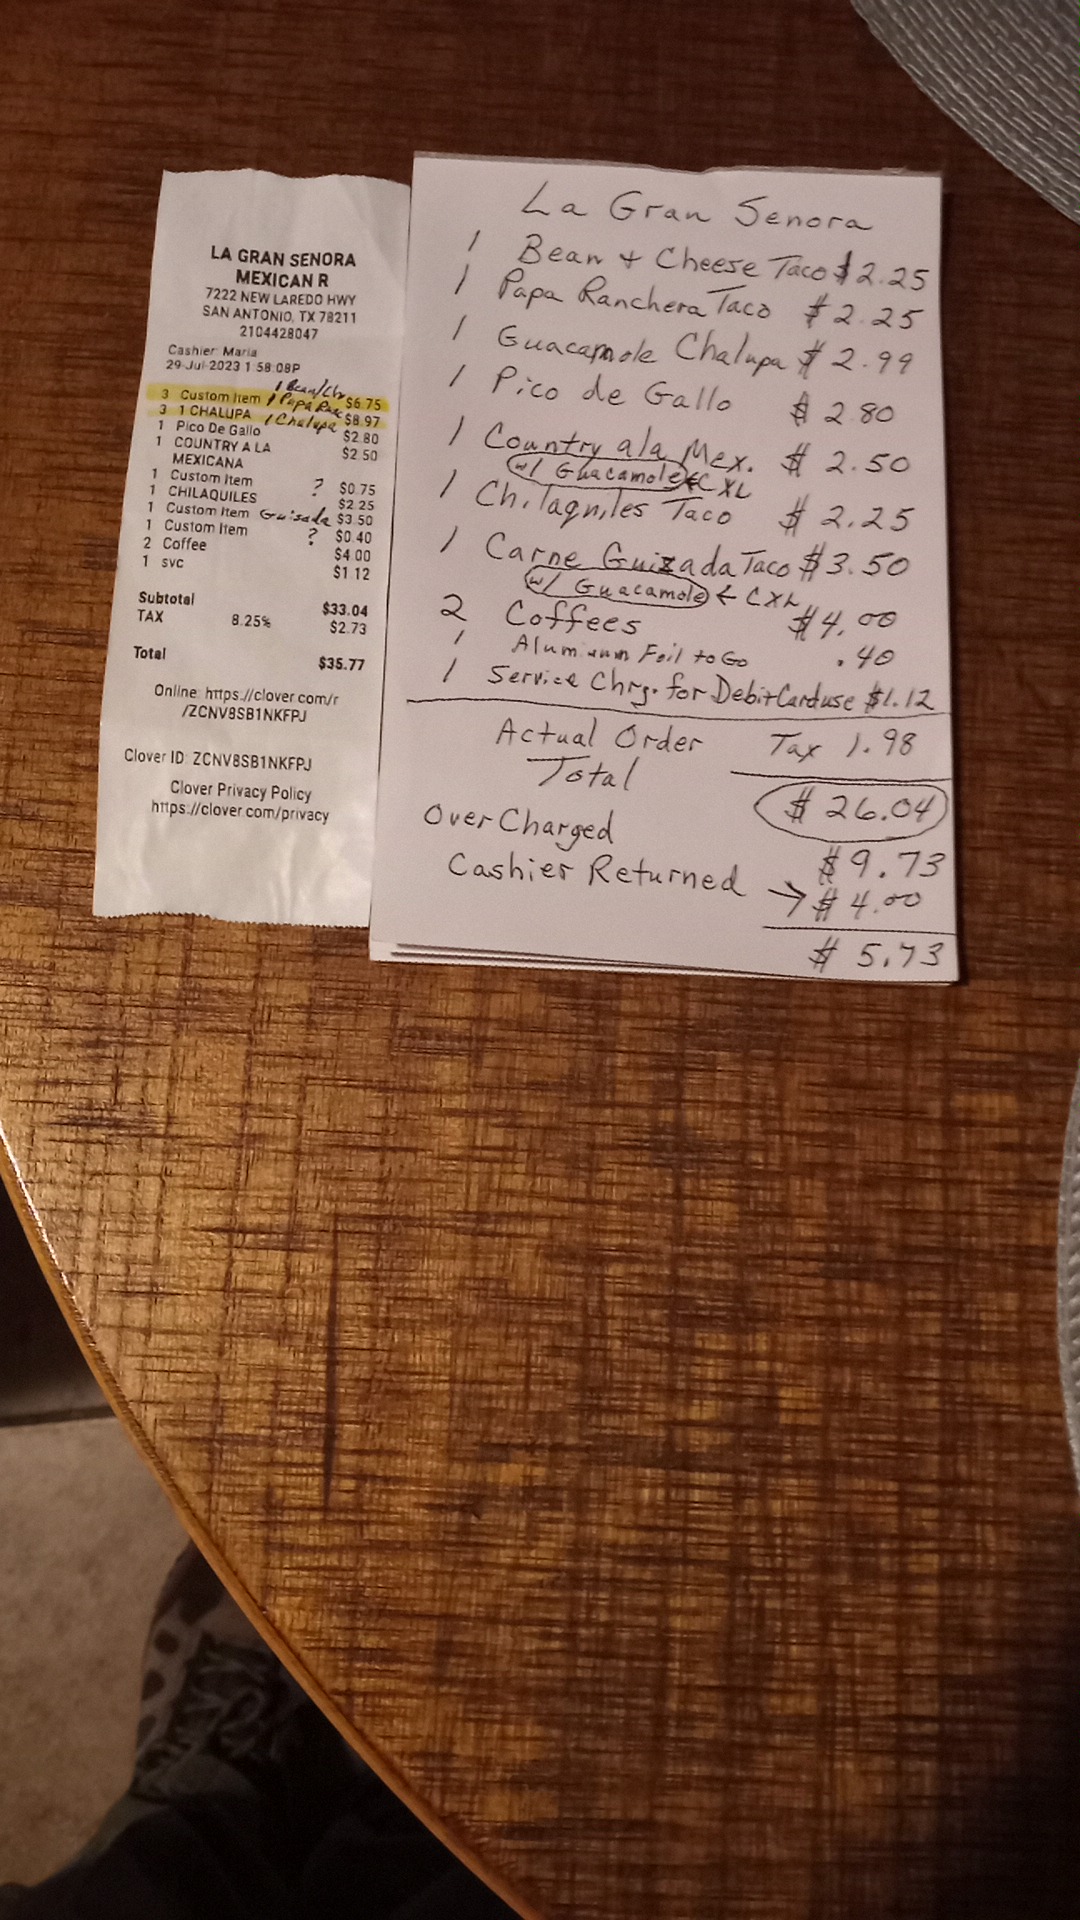 LA GRAN SENORA
MEXICAN R
7222 NEW LAREDO HWY
SAN ANTONIO, TX 78211
2104428047
Cashier: Maria
29-Jul-2023 1:58:08P
1 Bean/Ch
3 Custom Item 1 Papa Ranc $6.75
3 1 CHALUPA 1 Chalupa $8.97
1 Pico De Gallo $2.80
1 COUNTRY A LA $2.50
MEXICANA
1 Custom Item ? $0.75
1 CHILAQUILES $2.25
1 Custom Item Guisada $3.50
1 Custom Item ? $0.40
2 Coffee $4.00
1 svc $1.12
Subtotal $33.04
TAX 8.25% $2.73
Total $35.77
Online: https://clover.com/r
/ZCNV8SB1NKFPJ
Clover ID: ZCNV8SB1NKFPJ
Clover Privacy Policy
https://clover.com/privacy
La Gran Senora
1 Bean + Cheese Taco $2.25
1 Papa Ranchera Taco $2.25
1 Guacamole Chalupa $2.99
1 Pico de Gallo $2.80
1 Country ala Mex. $2.50
w/ Guacamole ← CXL
1 Chilaquiles Taco $2.25
1 Carne Guizada Taco $3.50
w/ Guacamole ← CXL
2 Coffees $4.00
1 Aluminum Foil to Go .40
1 Service Chrg. for Debit Card use $1.12
Actual Order Tax 1.98
Total $26.04
Over Charged $9.73
Cashier Returned → $4.00
$5.73